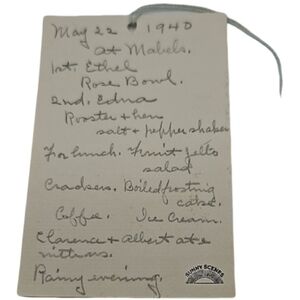 May 22 1940
at Mabels.
1st. Ethel
Rose Bowl.
2nd. Edna
Rooster & hen
salt & pepper shaker
For lunch. Fruit Jello
salad
Crackers. Boiled frosting
cake.
Coffee. Ice Cream.
Clarence & Albert ate
with us.
Rainy evening.
SUNNY SCENES